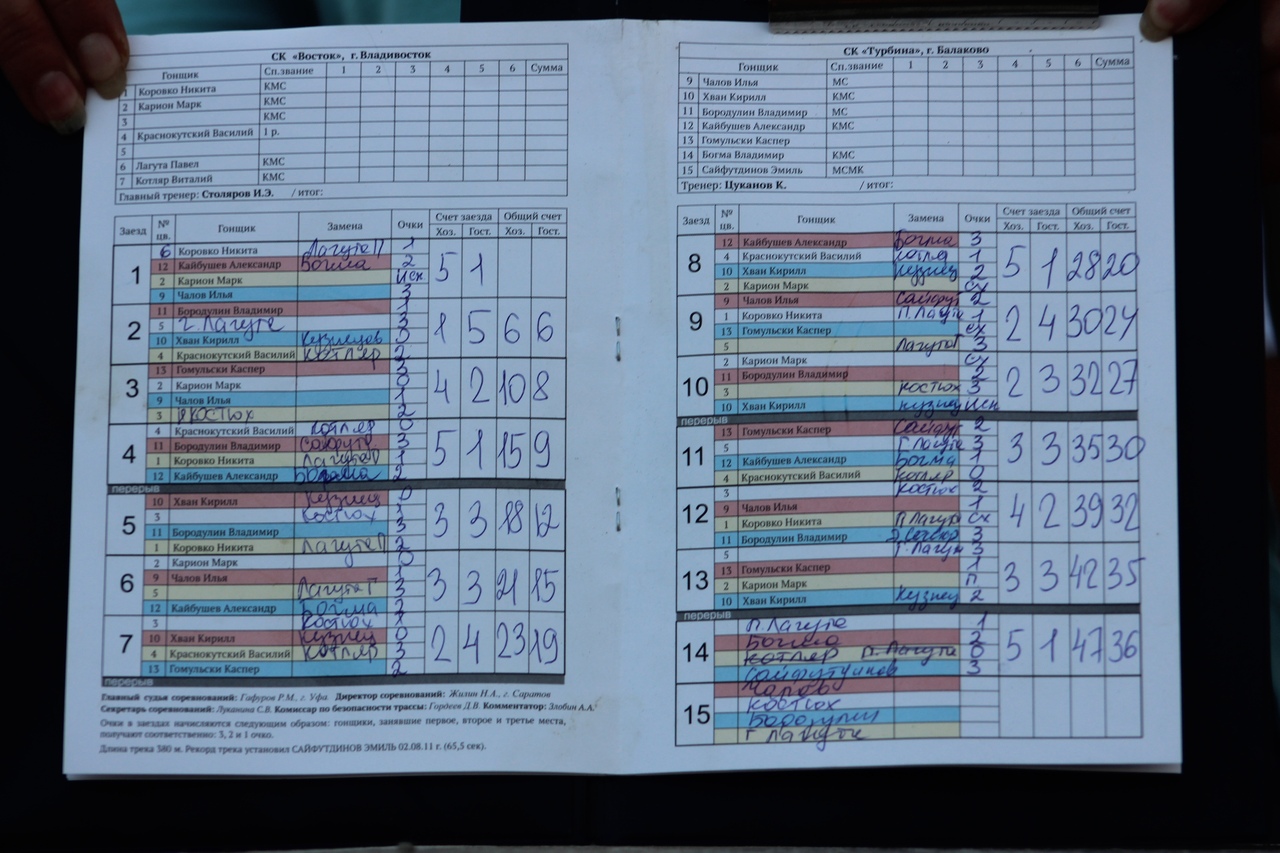 СК «Восток», г. Владивосток
Гонщик Сп.звание 1 2 3 4 5 6 Сумма
1 Коровко Никита КМС
2 Карион Марк КМС
3 КМС
4 Краснокутский Василий 1 р.
5
6 Лагута Павел КМС
7 Котляр Виталий КМС
Главный тренер: Столяров И.Э. / итог:
Заезд № цв. Гонщик Замена Очки Счет заезда Общий счет
Хоз. Гост. Хоз. Гост.
1 5 1
6 Коровко Никита Лагута П 1
12 Кайбушев Александр Богма 2
2 Карион Марк иск
9 Чалов Илья 3
2 1 5 6 6
11 Бородулин Владимир 1
5 Г. Лагута 3
10 Хван Кирилл Кузнецов 0
4 Краснокутский Василий Котляр 2
3 4 2 10 8
13 Гомульски Каспер 3
2 Карион Марк 0
9 Чалов Илья 1
3 Костюх 2
4 5 1 15 9
4 Краснокутский Василий Котляр 0
11 Бородулин Владимир 3
1 Коровко Никита Лагута П 1
12 Кайбушев Александр Богма 2
перерыв
5 3 3 18 12
10 Хван Кирилл Кузнец 0
3 Костюх 1
11 Бородулин Владимир 3
1 Коровко Никита Лагута П 2
6 3 3 21 15
2 Карион Марк 0
9 Чалов Илья 1
5 Лагута Г 3
12 Кайбушев Александр Богма 2
7 2 4 23 19
3 Костюх
10 Хван Кирилл Кузнец 0
4 Краснокутский Василий Котляр 3
13 Гомульски Каспер 2
перерыв
Главный судья соревнований: Гафуров Р.М., г. Уфа. Директор соревнований: Жилин Н.А., г. Саратов
Секретарь соревнований: Луканина С.В. Комиссар по безопасности трассы: Гордеев Д.В. Комментатор: Злобин А.А.
Очки в заездах начисляются следующим образом: гонщики, занявшие первое, второе и третье места,
получают соответственно: 3, 2 и 1 очко.
Длина трека 380 м. Рекорд трека установил САЙФУТДИНОВ ЭМИЛЬ 02.08.11 г. (65,5 сек).
СК «Турбина», г. Балаково
Гонщик Сп.звание 1 2 3 4 5 6 Сумма
9 Чалов Илья МС
10 Хван Кирилл КМС
11 Бородулин Владимир МС
12 Кайбушев Александр КМС
13 Гомульски Каспер
14 Богма Владимир КМС
15 Сайфутдинов Эмиль МСМК
Тренер: Цуканов К. / итог:
Заезд № цв. Гонщик Замена Очки Счет заезда Общий счет
Хоз. Гост. Хоз. Гост.
8 5 1 28 20
12 Кайбушев Александр Богма 3
4 Краснокутский Василий Котля 1
10 Хван Кирилл Кузнец 2
2 Карион Марк сх
9 2 4 30 24
9 Чалов Илья Сайфут 2
1 Коровко Никита П.Лагута 1
13 Гомульски Каспер сх
5 Лагута Г 3
10 2 3 32 27
2 Карион Марк сх
11 Бородулин Владимир 2
3 Костюх 3
10 Хван Кирилл Кузнец иск
перерыв
11 3 3 35 30
13 Гомульски Каспер Сайфут 2
5 Г.Лагута 3
12 Кайбушев Александр Богма 1
4 Краснокутский Василий Котляр 0
12 4 2 39 32
3 Костюх 2
9 Чалов Илья 1
1 Коровко Никита П.Лагута сх
11 Бородулин Владимир 3
13 3 3 42 35
5 Г.Лагута 3
13 Гомульски Каспер 1
2 Карион Марк п
10 Хван Кирилл Кузнец 2
перерыв
14 5 1 47 36
П.Лагута 1
Богма 2
Котляр П.Лагута 0
Сайфутдинов 3
15
Чалов
Костюх
Бородулин
Г Лагута